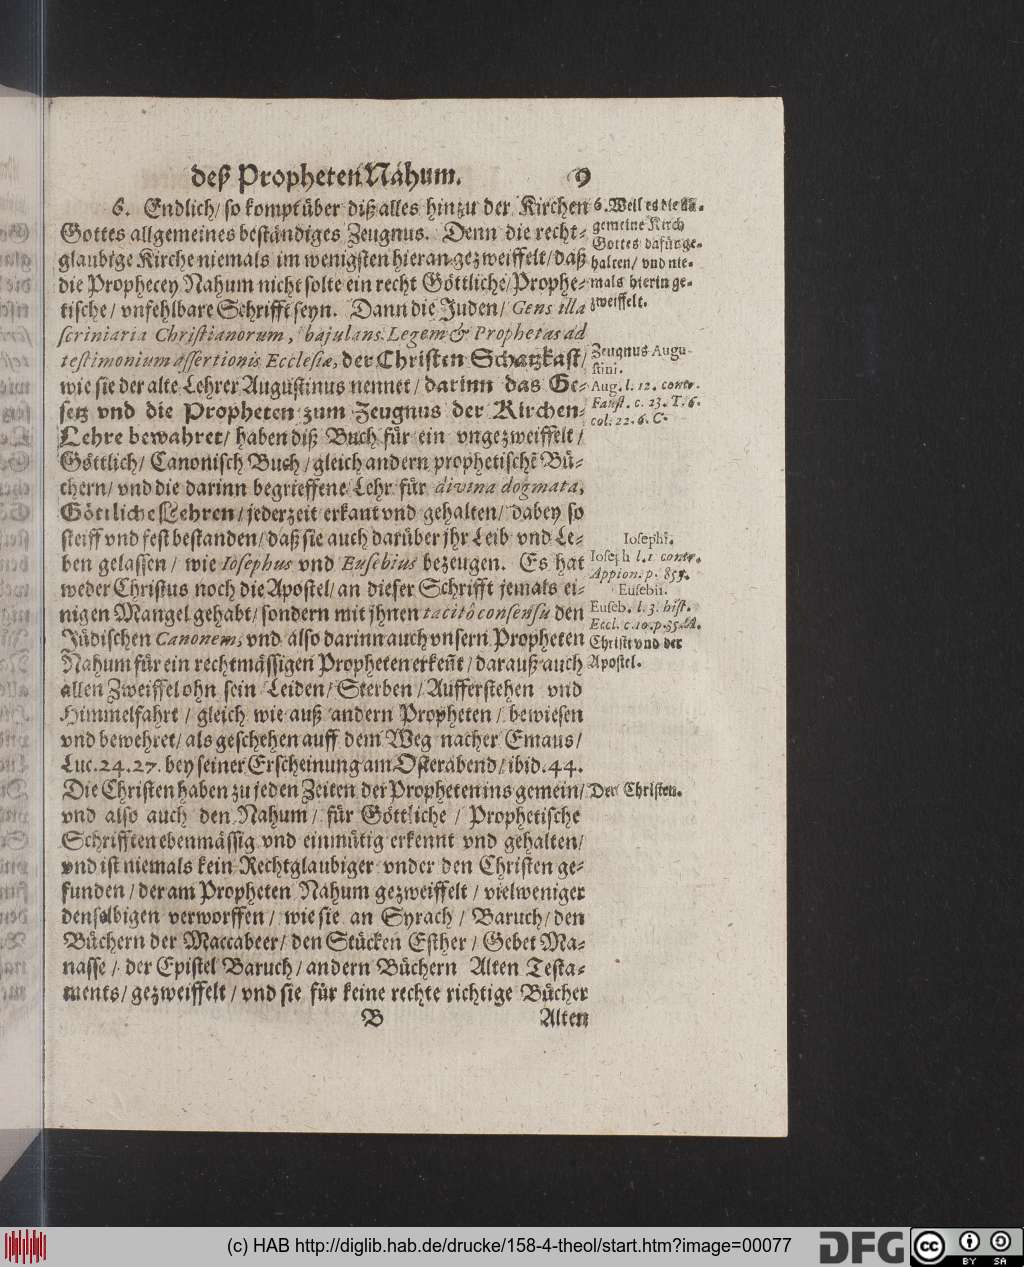 deß Propheten Nahum. 9
6. Endlich/ so kompt über diß alles hinzu der Kirchen
Gottes allgemeines beständiges Zeugnus. Denn die recht-
glaubige Kirche niemals im wenigsten hieran gezweiffelt/ daß
die Prophecey Nahum nicht solte ein recht Göttliche/ Prophe-
tische/ vnfehlbare Schrifft seyn. Dann die Juden/ Gens illa
scriniaria Christianorum, bajulans Legem & Prophetas ad
testimonium assertionis Ecclesiæ, der Christen Schatzkast/
wie sie der alte Lehrer Augustinus nennet/ darinn das Ge-
setz vnd die Propheten zum Zeugnus der Kirchen-
Lehre bewahret/ haben diß Buch für ein vngezweiffelt/
Göttlich/ Canonisch Buch/ gleich andern prophetischē Bü-
chern/ vnd die darinn begrieffene Lehr für divina dogmata,
Göttliche Lehren/ jederzeit erkant vnd gehalten/ dabey so
steiff vnd fest bestanden/ daß sie auch darüber jhr Leib vnd Le-
ben gelassen/ wie Iosephus vnd Eusebius bezeugen. Es hat
weder Christus noch die Apostel/ an dieser Schrifft jemals ei-
nigen Mangel gehabt/ sondern mit jhnen tacitô consensu den
Jüdischen Canonem, vnd also darinn auch vnsern Propheten
Nahum für ein rechtmässigen Propheten erkeñt/ darauß auch
allen Zweiffel ohn sein Leiden/ Sterben/ Aufferstehen vnd
Himmelfahrt/ gleich wie auß andern Propheten/ bewiesen
vnd bewehret/ als geschehen auff dem Weg nacher Emaus/
Luc. 24. 27. bey seiner Erscheinung am Osterabend/ ibid. 44.
Die Christen haben zu jeden Zeiten der Propheten ins gemein/
vnd also auch den Nahum/ für Göttliche/ Prophetische
Schrifften ebenmässig vnd einmütig erkennt vnd gehalten/
vnd ist niemals kein Rechtglaubiger vnder den Christen ge-
funden/ der am Propheten Nahum gezweiffelt/ vielweniger
denselbigen verworffen/ wie sie an Syrach/ Baruch/ den
Büchern der Maccabeer/ den Stücken Esther/ Gebet Ma-
nasse/ der Epistel Baruch/ andern Büchern Alten Testa-
ments/ gezweiffelt/ vnd sie für keine rechte richtige Bücher
B Alten
6. Weil es die
gemeine Kirch
Gottes dafür ge-
halten/ vnd nie-
mals hierin ge-
zweiffelt.
Zeugnus Augu-
stini.
Aug. l. 12. contr.
Faust. c. 23. T. 6.
col. 22. 6. C.
Iosephi.
Ioseph l. 1. contr.
Appion. p. 859.
Eusebii.
Euseb. l. 3. hist.
Eccl. c. 10. p. 35.
Christi vnd der
Apostel.
Der Christen.
(c) HAB http://diglib.hab.de/drucke/158-4-theol/start.htm?image=00077
DFG
cc
BY SA